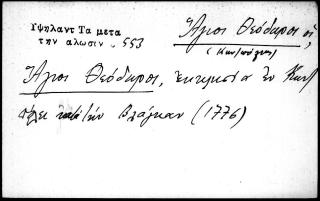 Υψηλαντ Τα μετα
την αλωσιν . 553
Ἅγιοι Θεόδωροι οἱ,
(Κων/πόλεως)
Ἅγιοι Θεόδωροι, ἐκκλησία ἐν Κων/
πόλει κατὰ τὴν Βλάγκαν (1776)